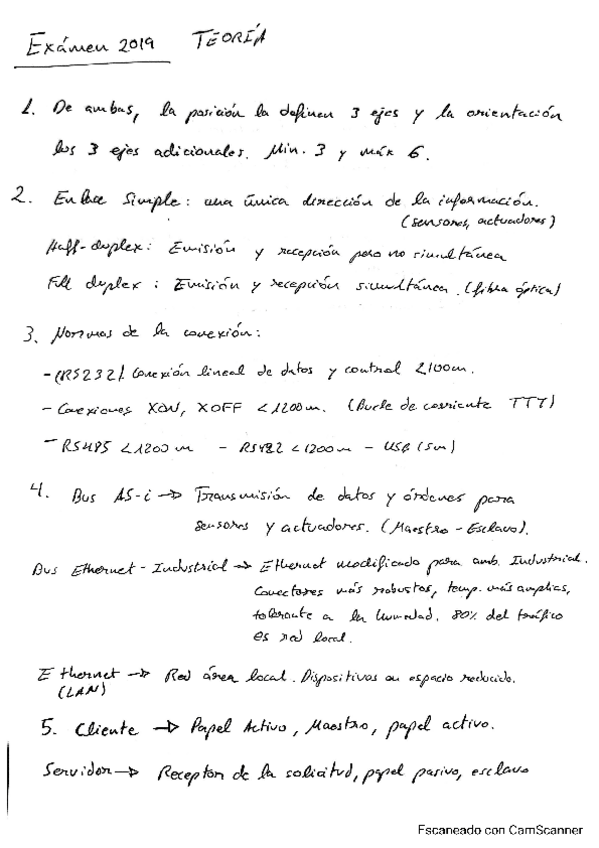 Exámen 2019 TEORÍA
1. De ambas, la posición la definen 3 ejes y la orientación
los 3 ejes adicionales. Min. 3 y máx 6.
2. Enlace Simple: una única dirección de la información.
(sensores, actuadores)
Half-duplex: Emisión y recepción pero no simultánea
Full duplex: Emisión y recepción simultánea. (fibra óptica)
3. Normas de la conexión:
- (RS232). Conexión lineal de datos y control <100m.
- Conexiones XON, XOFF <1200m. (Bucle de corriente TTY)
- RS485 <1200m - RS422 <1200m - USB (5m)
4. Bus AS-i → Transmisión de datos y órdenes para
sensores y actuadores. (Maestro - Esclavo).
Bus Ethernet-Industrial → Ethernet modificado para amb. Industrial.
Conectores más robustos, temp. más amplias,
tolerante a la humedad. 80% del tráfico
es red local.
Ethernet → Red área local. Dispositivos en espacio reducido.
(LAN)
5. Cliente → Papel Activo, Maestro, papel activo.
Servidor → Receptor de la solicitud, papel pasivo, esclavo
Escaneado con CamScanner